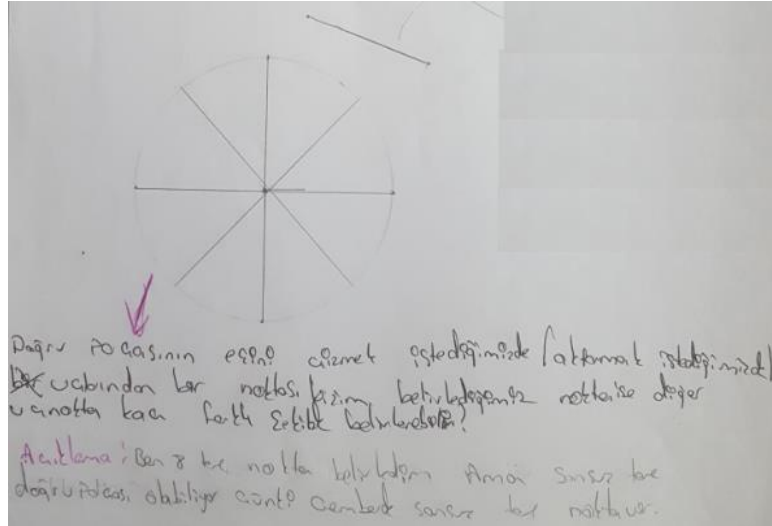 Doğru Pocasının eşini çizmek istediğimizde /aktarmak istediğimizde/
ucundan bir noktası bizim belirlediğimiz nokta ise diğer
uç nokta kaç farklı şekilde belirlenebilir?
Açıklama: Ben 8 tane nokta belirledim Ama sonsuz tane
doğru Pdcası olabiliyor çünkü Çemberde sonsuz tane nokta var.